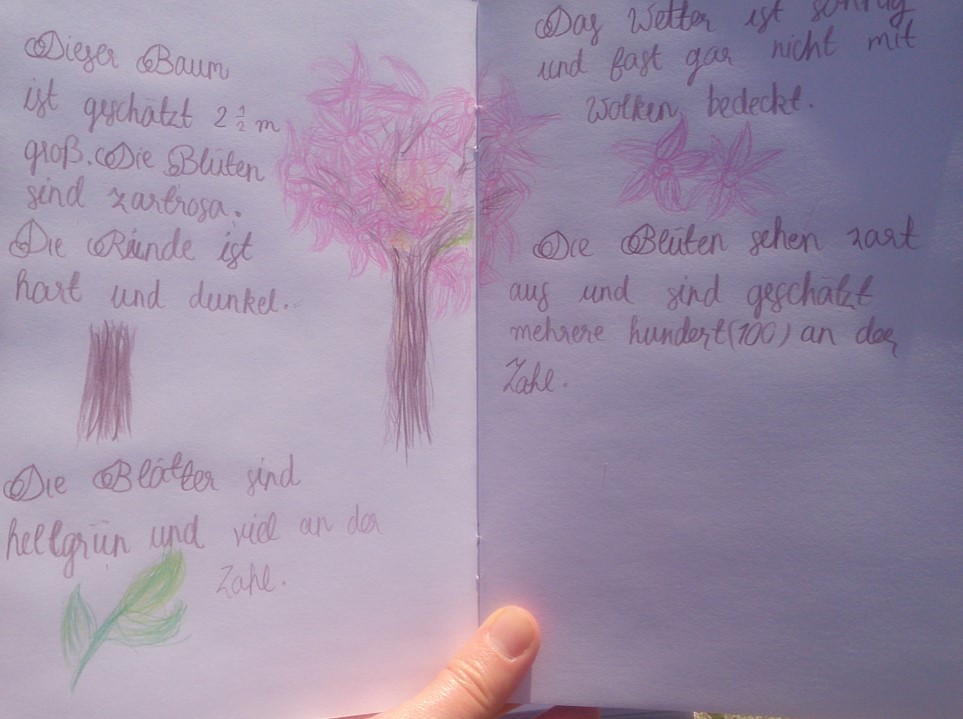 Dieser Baum
ist geschätzt 2 ½ m
groß. Die Blüten
sind zartrosa.
Die Rinde ist
hart und dunkel.
Die Blätter sind
hellgrün und viel an der
Zahl.
Das Wetter ist sonnig
und fast gar nicht mit
Wolken bedeckt.
Die Blüten sehen zart
aus und sind geschätzt
mehrere hundert (100) an der
Zahl.